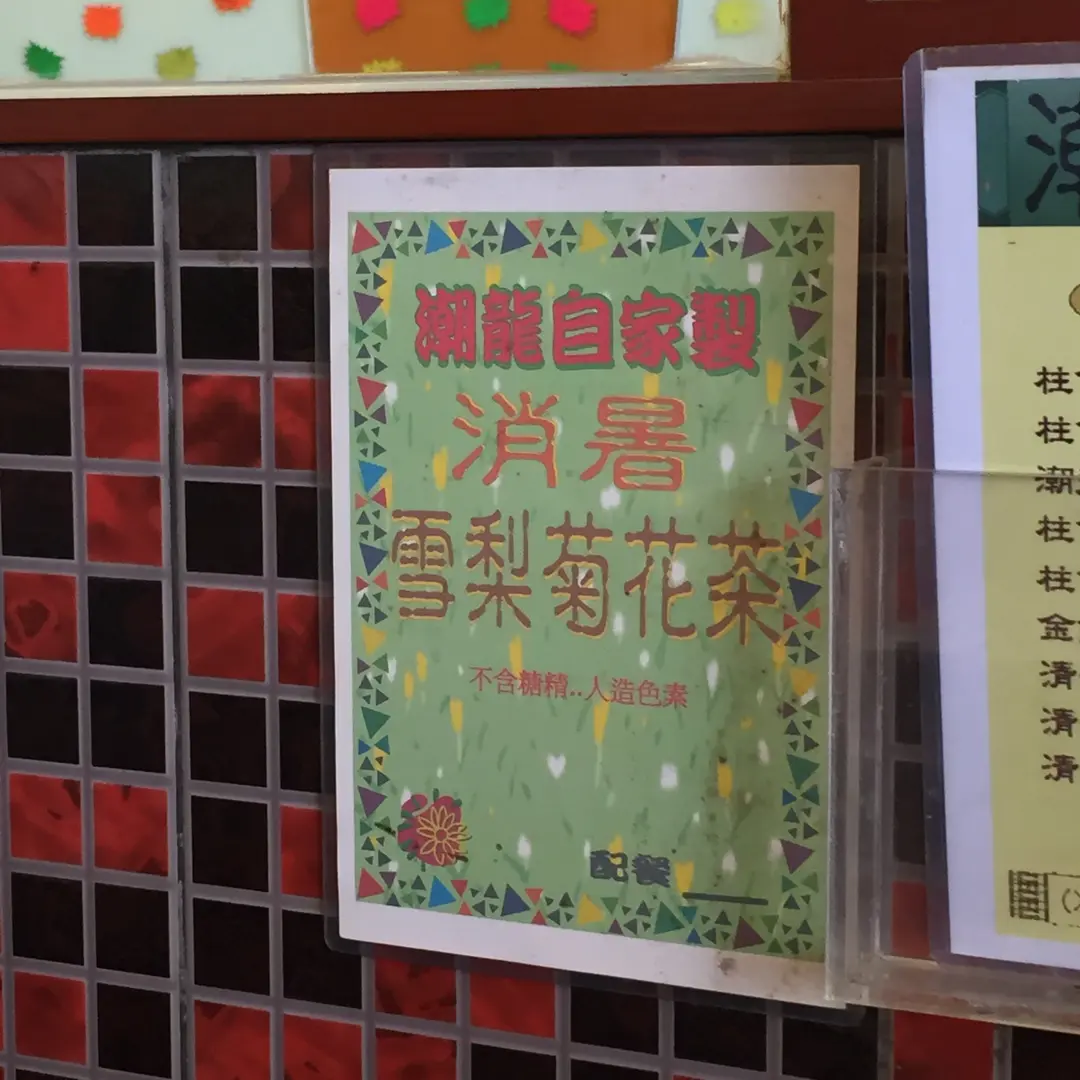 潮龍自家製
消暑
雪梨菊花茶
不含糖精..人造色素
配餐
柱
柱
潮
柱
柱
金
清
清
清